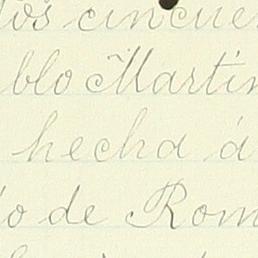 dos cincuen
blo Martin
hecha á
do de Rom